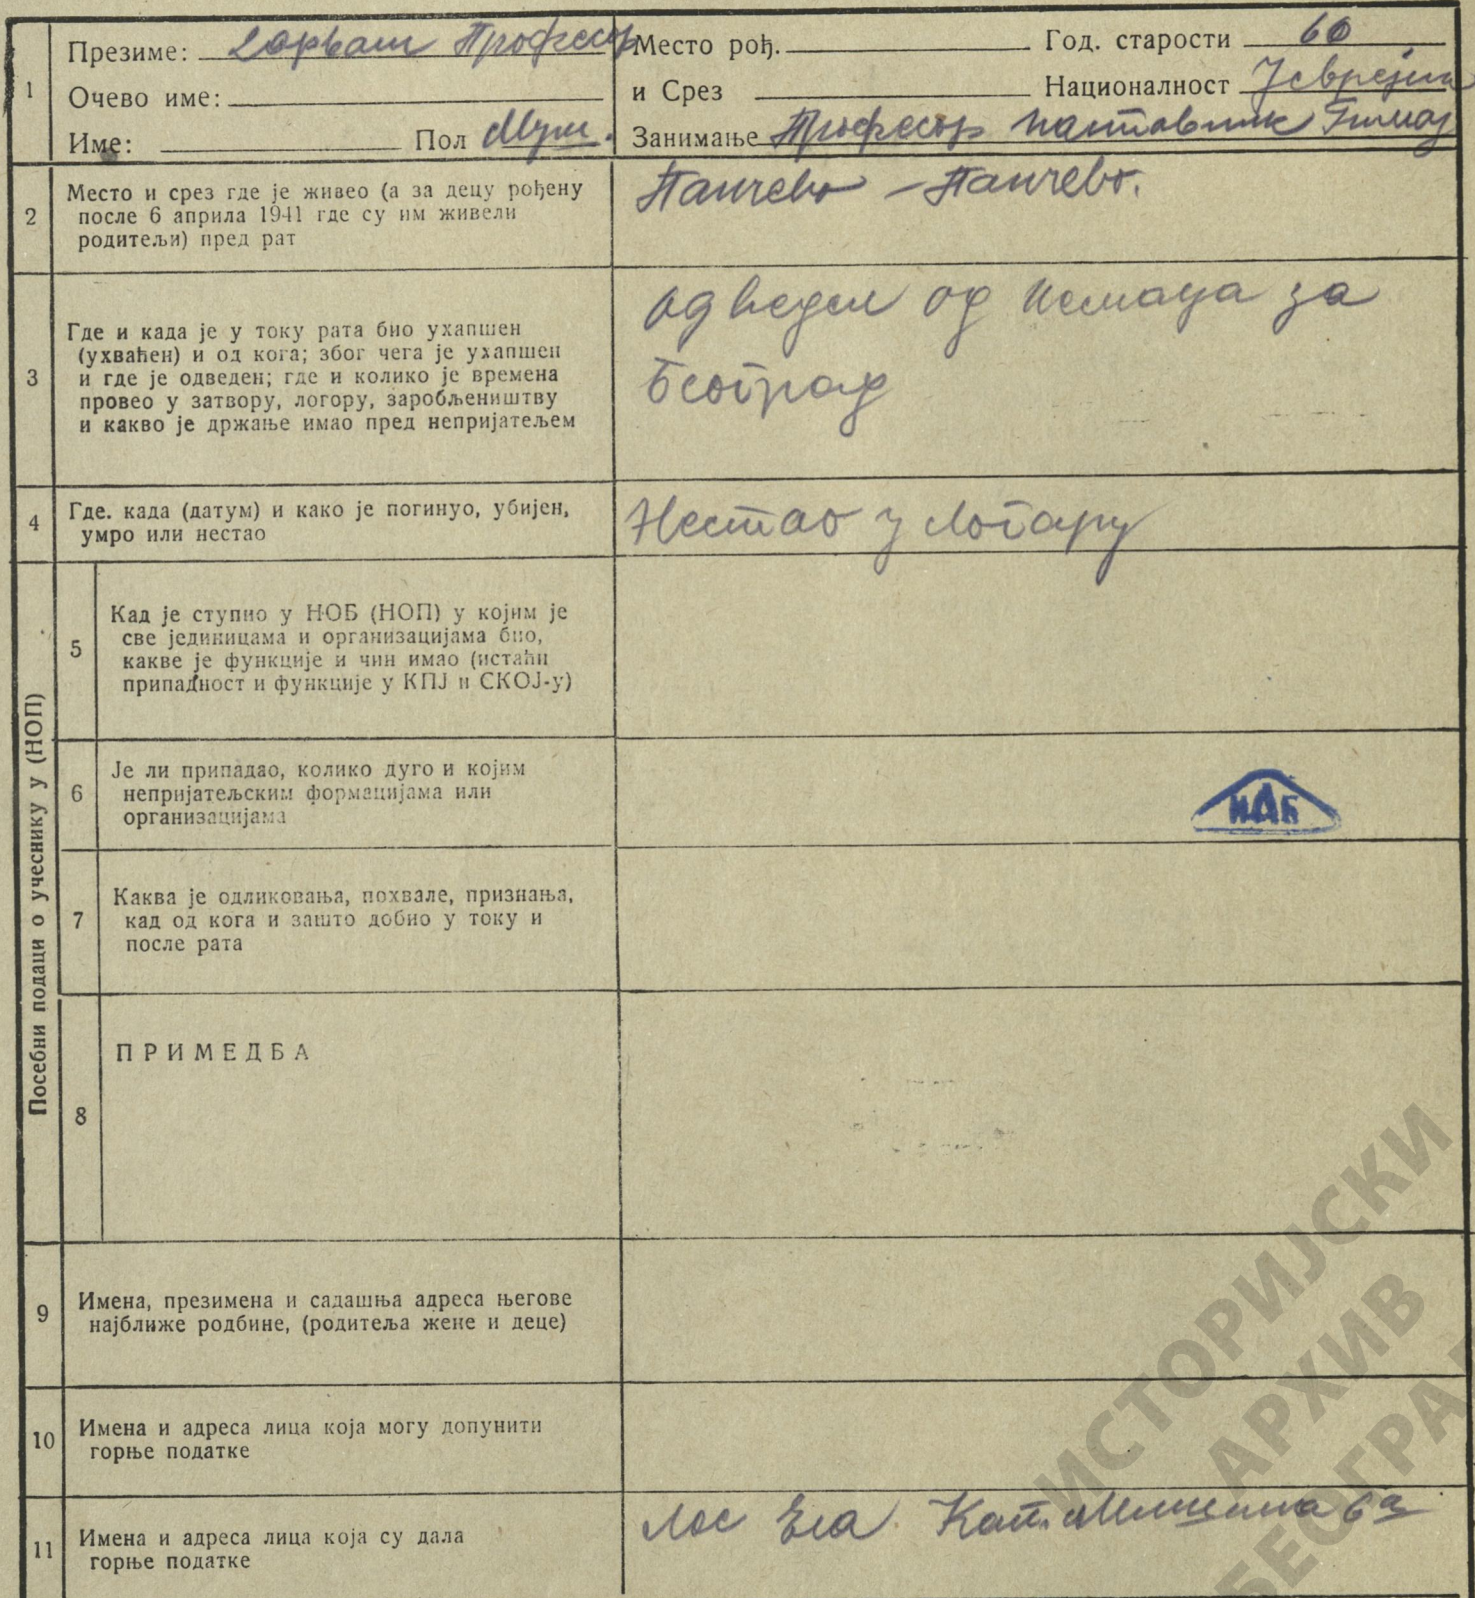 1
Презиме: Хорваш Професор
Место рођ. Год. старости 60
Очево име:
и Срез Национальност Јеврејин
Име: Пол Муш.
Занимање Професор наставник Гимназ
2
Место и срез где је живео (а за децу рођену
после 6 априла 1941 где су им живели
родитељи) пред рат
Панчево – Панчево.
3
Где и када је у току рата био ухапшен
(ухваћен) и од кога; због чега је ухапшен
и где је одведен; где и колико је времена
провео у затвору, логору, заробљеништву
и какво је држање имао пред непријатељем
одведен од Немаца за
Београд
4
Где. када (датум) и како је погинуо, убијен,
умро или нестао
Нестао у Логару
Посебни подаци о учеснику у (НОП)
5
Кад је ступио у НОБ (НОП) у којим је
све јединицама и организацијама био,
какве је функције и чин имао (истаћи
припадност и функције у КПЈ и СКОЈ-у)
6
Је ли припадао, колико дуго и којим
непријатељским формацијама или
организацијама
ИАБ
7
Каква је одликовања, похвале, признања,
кад од кога и зашто добио у току и
после рата
8
ПРИМЕДБА
9
Имена, презимена и садашња адреса његове
најближе родбине, (родитеља жене и деце)
10
Имена и адреса лица која могу допунити
горње податке
11
Имена и адреса лица која су дала
горње податке
Лос Ела Кап. Мишића 6а
ИСТОРИЈСКИ
АРХИВ
БЕОГРА